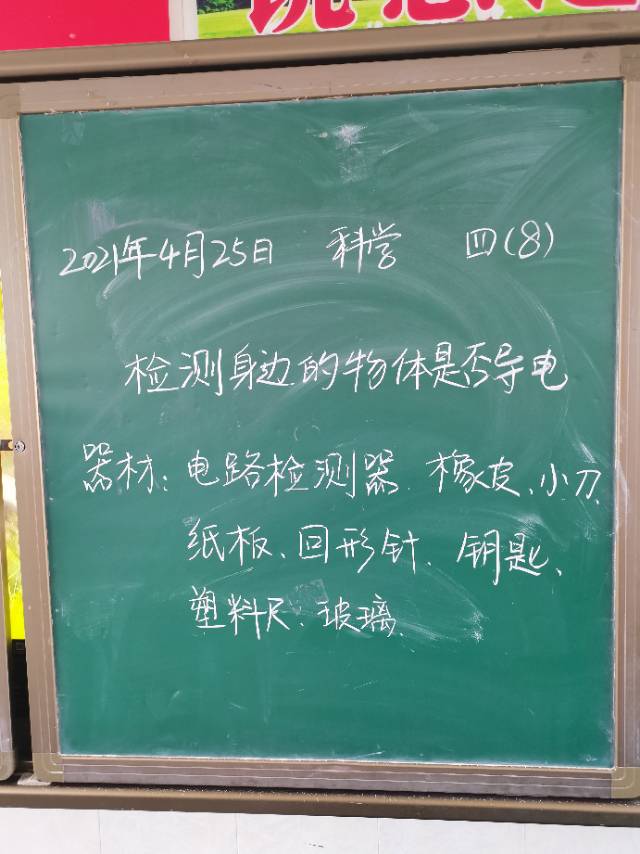 2021年4月25日 科学 四(8)
检测身边的物体是否导电
器材:电路检测器、橡皮、小刀、
纸板、回形针、钥匙、
塑料尺、玻璃